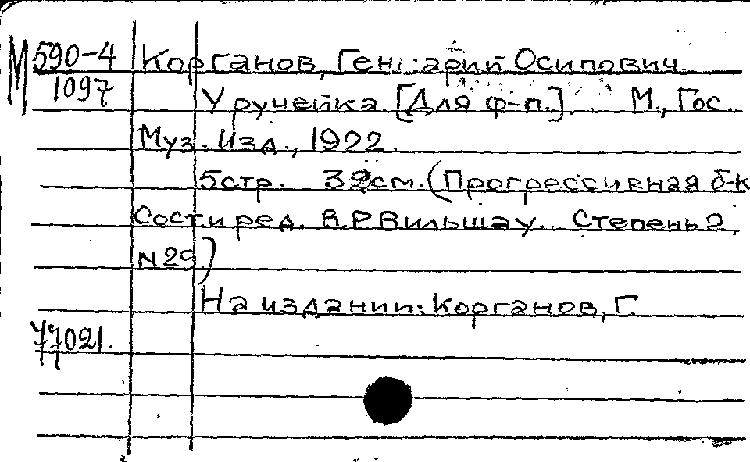 М 590-4 Корганов, Генварий Осипович
1097 У ручейка. [Для ф-п.]. М., Гос.
Муз. Изд., 1922.
5стр. см. (Прогрессивная б-к
Сост. и ред. В.Р. Вильшау. Степень 2,
N 29)
На издании: Корганов, Г.
77021.